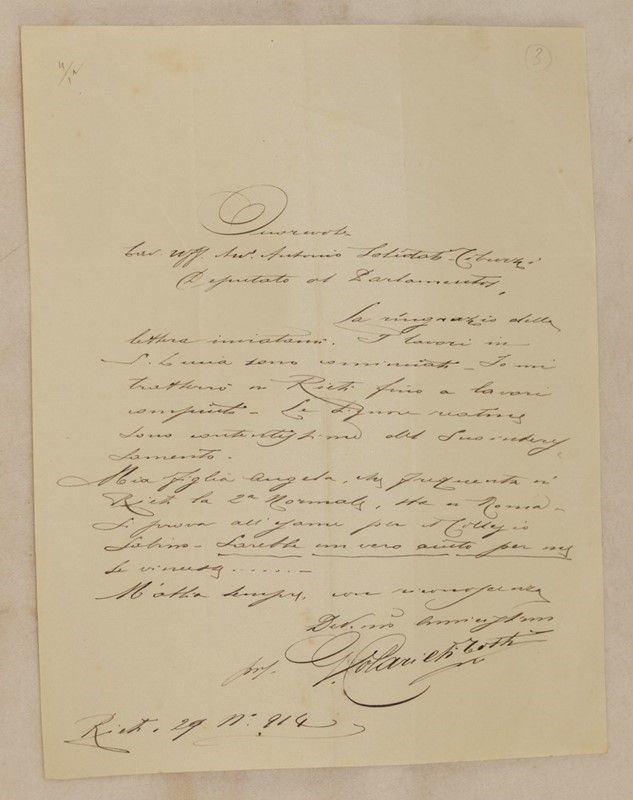 3
Onorevole
Cav. Uff. Avv. Antonio
Deputato al Parlamento,
La ringrazio della
lettera inviatami. I lavori in
S. Lucia sono cominciati - Io mi
tratterrò in Rieti fino a lavori
compiuti - Le Signore
sono contentissime del Suo interes
samento.
Mia figlia Angela, che frequenta in
Rieti la 2a Normale, sta a Roma -
Si prova all'esame per il Collegio
Sabino - Sarebbe un vero aiuto per me
se vincesse . . . . . . -
M'abbia sempre, con riconoscenza
Dev.mo
prof.
Rieti, 29 914